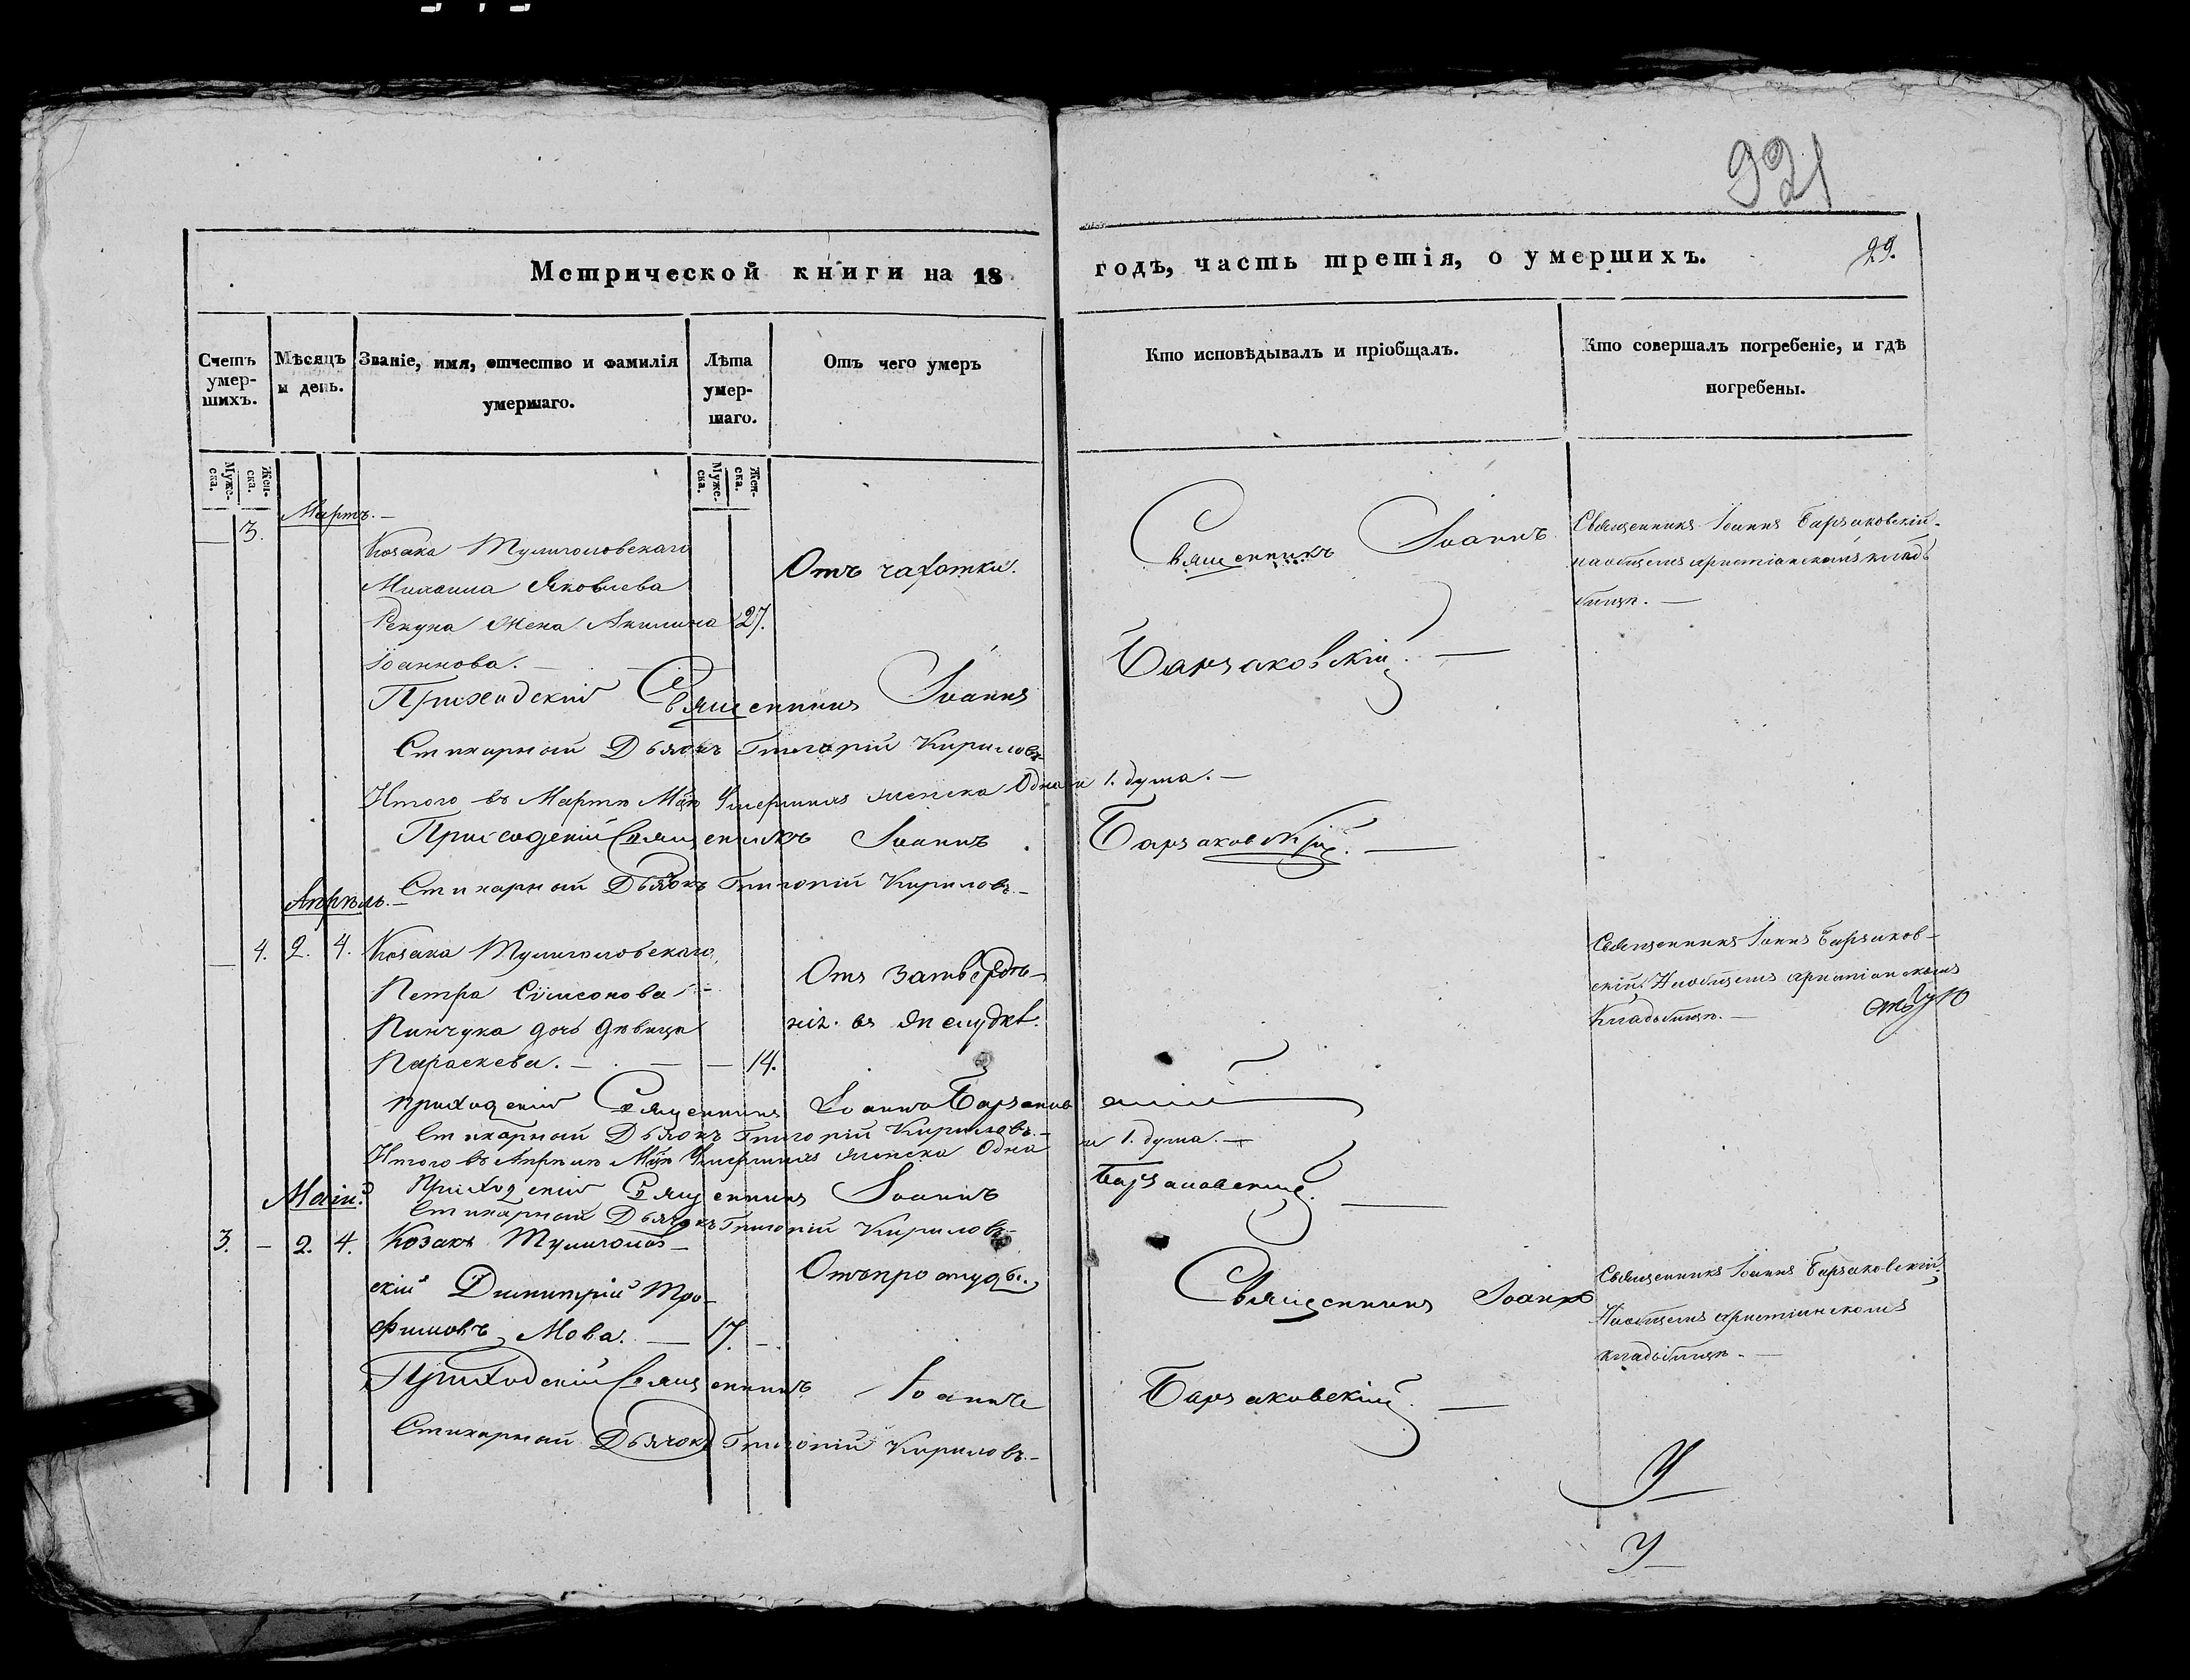 921
Метрической книги на 18 годъ, часть третія, о умершихъ. 29.
Счетъ умер-шихъ. Мѣсяцъ и день. Званіе, имя, отчество и фамилія умершаго. Лѣта умер-шаго. Отъ чего умеръ Кто исповѣдывалъ и пріобщалъ. Кто совершалъ погребеніе, и гдѣ погребены.
Муже-ска. Жен-ска. Муже-ска. Жен-ска.
Мартъ.
3.
Козака Тулиголовскаго
Михаила Яковлева
Рекуна жена Акилина 27.
Іоаннова.
Отъ чахотки.
Священникъ Іоаннъ
Барзаковскій.
Священникъ Іоаннъ Барзаковскій
на общемъ христіанскомъ клад-
бищѣ.
Приходскій Священникъ Іоаннъ
Стихарный Дьячокъ Григорій Кириловъ
Итого въ Мартѣ Мцѣ Умершихъ женска Одна 1. душа.
Приходскій Священникъ Іоаннъ Барзаковскій.
Стихарный Дьячокъ Григорій Кириловъ.
Апрѣль.
4. 2. 4. Козака Тулиголовскаго
Петра Сѵмеонова
Пинчука дочь дѣвица
Параскева. 14.
Отъ затвердѣ-
нія въ желудкѣ.
Священникъ Іоаннъ Барзаков-
скій. На общемъ христіанскомъ
Кладбищѣ.
Приходскій Священникъ Іоаннъ Барзаков скій
Стихарный Дьячокъ Григорій Кириловъ.
Итого въ Апрѣлѣ Мцѣ Умершихъ женска Одна 1. душа.
Приходскій Священникъ Іоаннъ Барзаковскій.
Стихарный Дьячокъ Григорій Кириловъ
Маій.
3. 2. 4. Козакъ Тулиголов-
скій Димитрій Тро-
фимовъ Мова. 17.
Отъ простуды.
Священникъ Іоаннъ
Барзаковскій.
Священникъ Іоаннъ Барзаковскій.
На общемъ христіанскомъ
кладбищѣ.
Приходскій Священникъ Іоаннъ
Стихарный Дьячокъ Григорій Кириловъ.